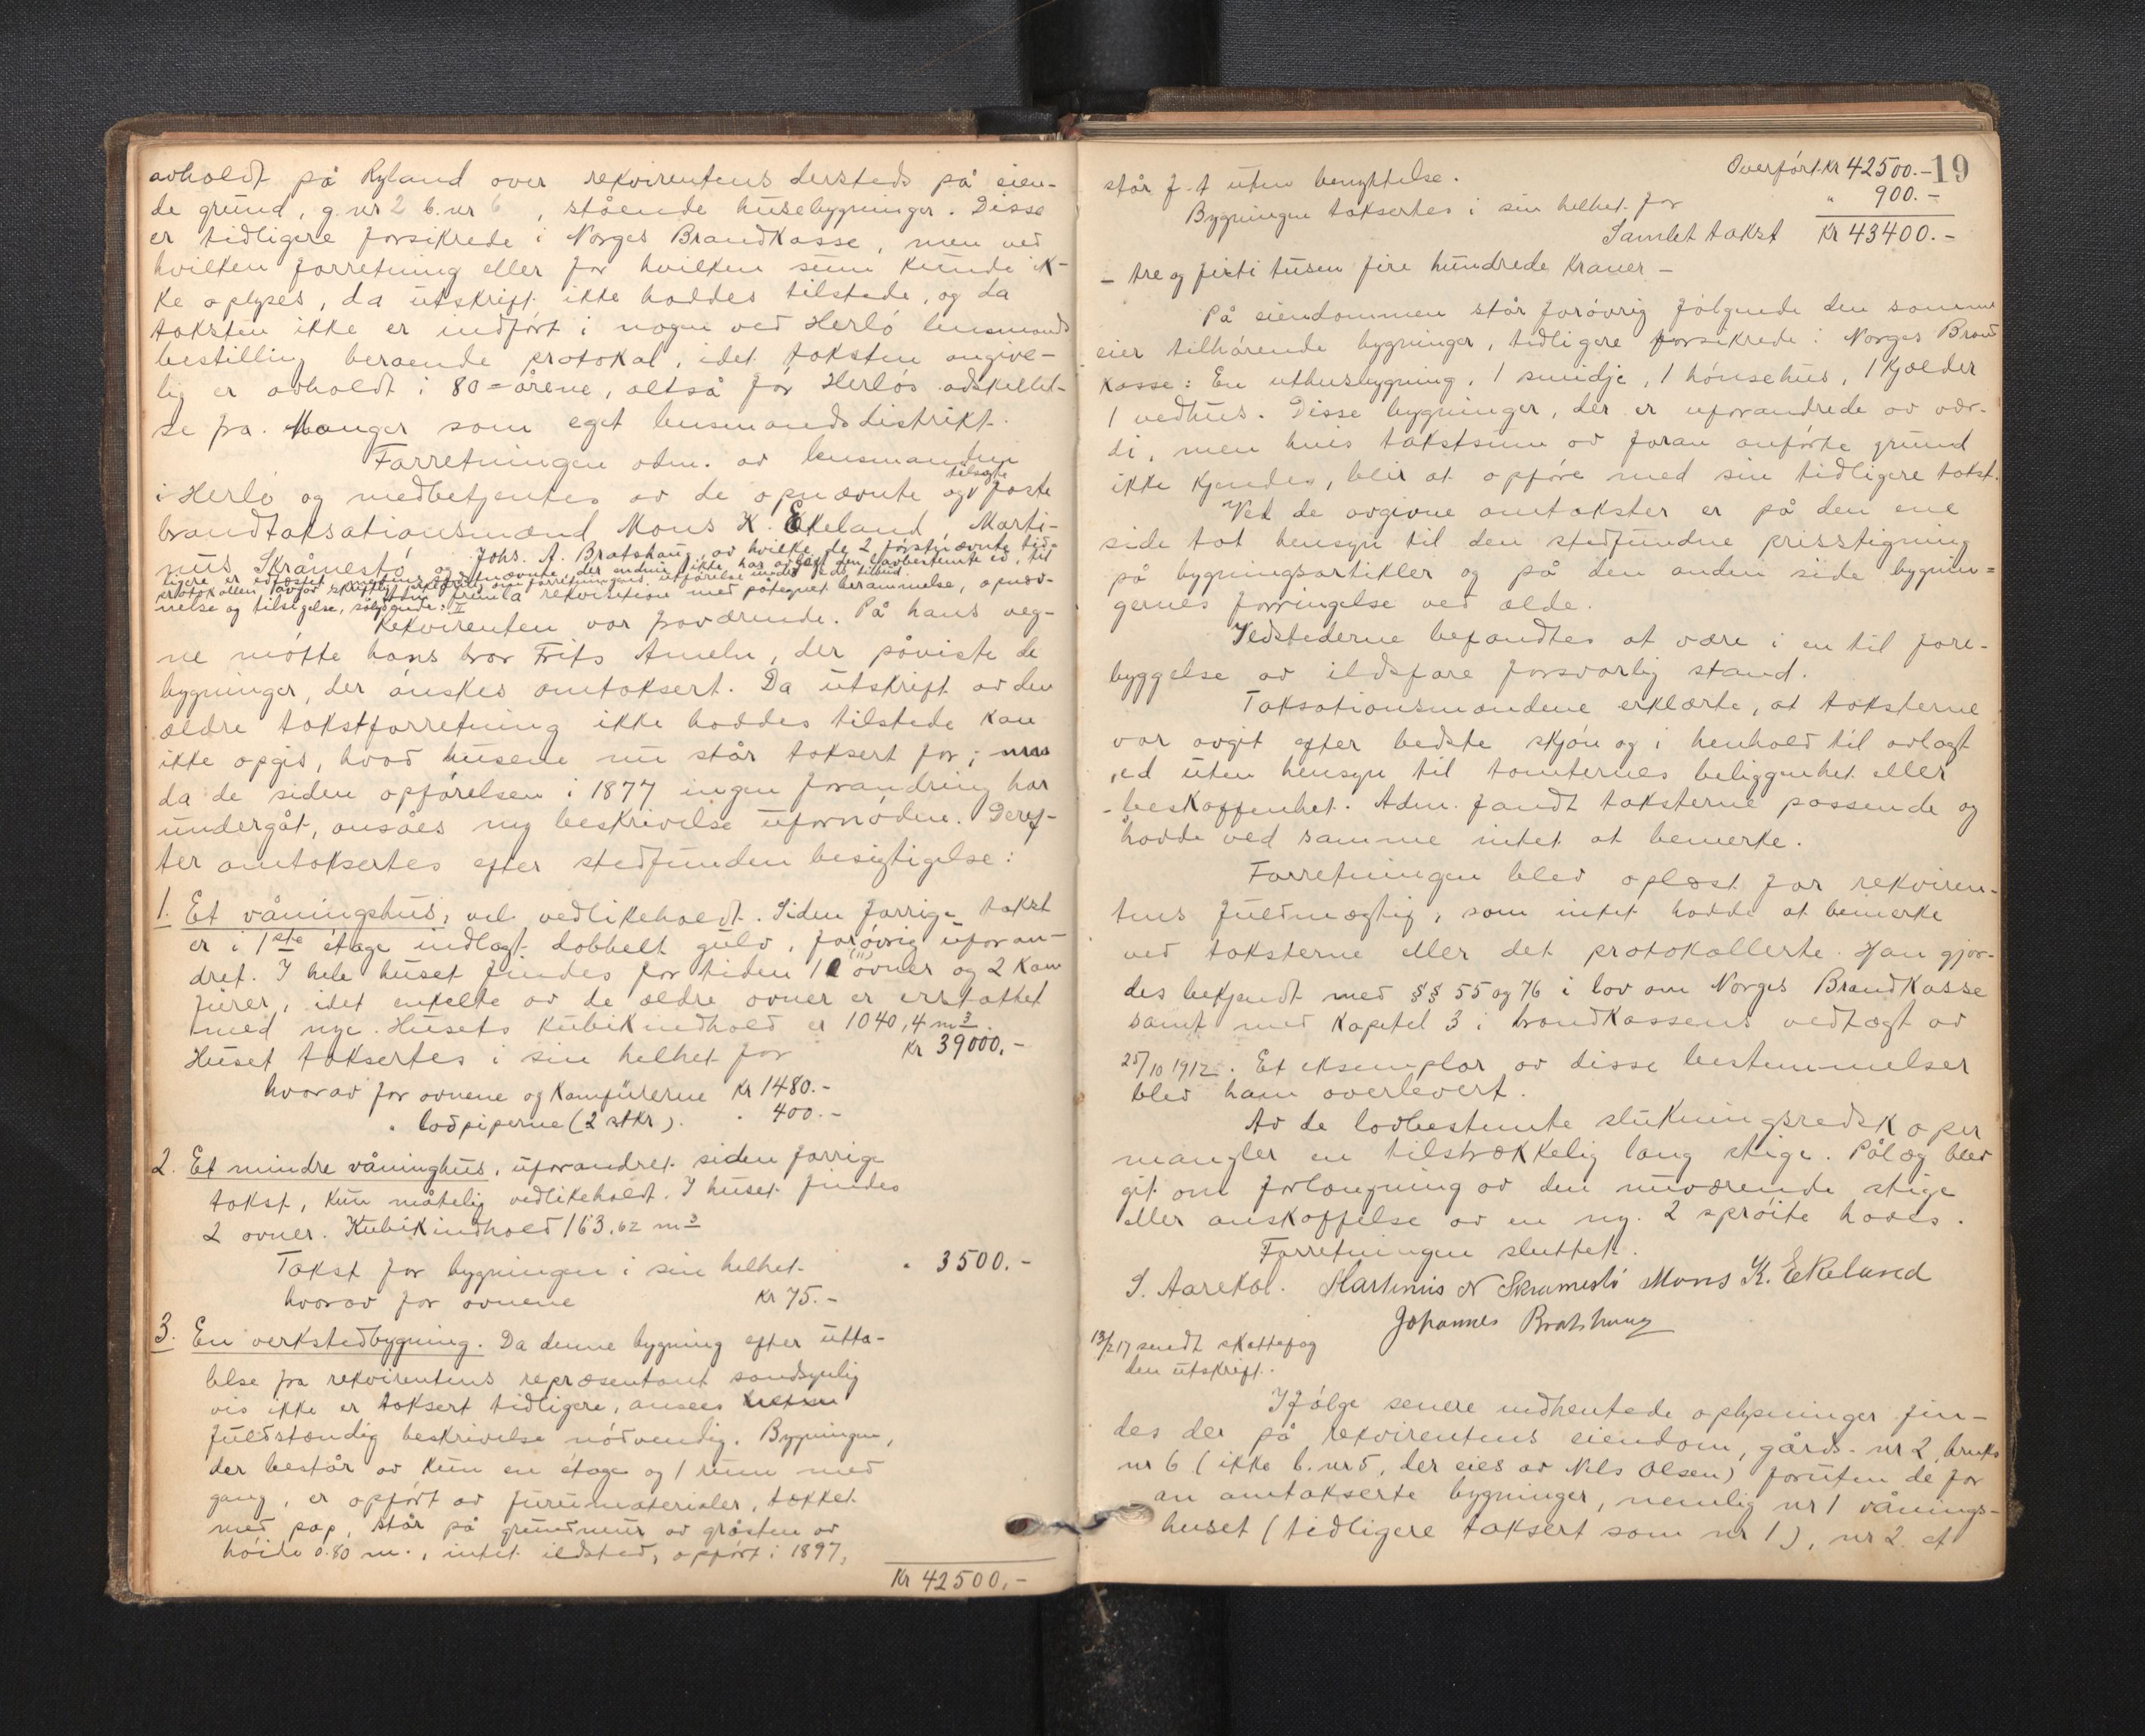 avholdt på Ryland over rekvirentens dersteds på eien-
de grund, g. nr 2 b. nr 6, stående husebygninger. Disse
er tidligere forsikrede i Norges Brandkasse, men ved
hvilken forretning eller for hvilken sum kunde ik-
ke oplyses, da utskrift ikke haddes tilstede, og da
taksten ikke er indført i nogen ved Herlö lensmands
bestilling beroende protokol, idet taksten angive-
lig er avholdt i 80-årene, altså før Herlös adskillel-
se fra Manger som eget lensmandsdistrikt.
Forretningen adm. av lensmanden
i Herlö og medbetjentes av de opnævnte og tilsagte faste
brandtaksationsmænd Mons K. Ekeland, Marti-
nus Skråmestö og Johs. A. Bratshaug, av hvilke de 2 førstnævnte tid-
ligere er edfæstet, sistnævnte, der endnu ikke har avlagt den lovbestemte ed, til
protokollen avgav skriftlig forsikring om forretningens utførelse under eds tilbud.
fremla rekvisition med påtegnet berammelse, opnæv-
nelse og tilsigelse, sålydende: I
Rekvirenten var fraværende. På hans veg-
ne møtte hans bror Frits Ameln, der påviste de
bygninger, der ønskes omtaksert. Da utskrift av den
ældre takstforretning ikke haddes tilstede kan
ikke opgis, hvad husene nu står taksert for; men
da de siden opførelsen i 1877 ingen forandring har
undergåt, ansåes ny beskrivelse ufornøden. Deref-
ter omtaksertes efter stedfunden besigtigelse:
1. Et våningshus, vel vedlikeholdt. Siden forrige takst
er i 1ste étage indlagt dobbelt gulv, forøvrig uforan-
dret. I hele huset findes for tiden 11 (11) ovner og 2 kam
fürer, idet enkelte av de ældre ovner er erstattet
med nye. Husets kubikindhold er 1040,4 m3.
Huset taksertes i sin helhet for Kr 39000.-
hvorav for ovnene og kamfürerne Kr 1480.-
" lodpiperne (2 stkr). " 400.-
2. Et mindre våninghus, uforandret siden forrige
takst, kun måtelig vedlikeholdt. I huset findes
2 ovner. Kubikindhold 163,62 m3
Takst for bygningen i sin helhet. " 3500.-
hvorav for ovnene Kr 75.-
3. En verkstedbygning. Da denne bygning efter utta-
lelse fra rekvirentens repræsentant sandsynlig
vis ikke er taksert tidligere, ansees
fuldstændig beskrivelse nödvendig. Bygningen,
der består av kun en étage og 1 rum med
gang, er opført av furumaterialer, tækket
med pap, står på grundmur av gråsten av
höide 0.80 m., intet ildsted, opført i 1897,
Kr 42500.-
19
Overført Kr 42500.-
står f. t. uten benyttelse.
Bygningen taksertes i sin helhet for " 900.-
Samlet takst Kr 43400.-
- tre og firti tusen fire hundrede kroner -
På eiendommen står forövrig følgende den samme
eier tilhørende bygninger, tidligere forsikrede i Norges Brand
kasse: En uthusbygning, 1 smidje, 1 hönsehus, 1 kjælder
1 vedhus. Disse bygninger, der er uforandrede av vær-
di, men hvis takstsum av foran anförte grund
ikke kjendes, blir at opföre med sin tidligere takst.
Ved de avgivne omtakster er på den ene
side tat hensyn til den stedfundne prisstigning
på bygningsartikler og på den anden side bygnin-
gernes forringelse ved ælde.
Ildstederne befandtes at være i en til fore-
byggelse av ildsfare forsvarlig stand.
Taksationsmændene erklærte, at taksterne
var avgit efter bedste skjön og i henhold til avlagt
ed uten hensyn til tomternes beliggenhet eller
beskaffenhet. Adm. fandt taksterne passende og
hadde ved samme intet at bemerke.
Forretningen blev oplæst for rekviren-
tens fuldmægtig, som intet hadde at bemerke
ved taksterne eller det protokollerte. Han gjor-
des bekjendt med §§ 55 og 76 i lov om Norges Brandkasse
samt med kapitel 3 i brandkassens vedtægt av
25/10 1912. Et eksemplar av disse bestemmelser
blev ham overlevert.
Av de lovbestemte slukningsredskaper
mangler en tilstrækkelig lang stige. Pålæg blev
git om forlængning av den nuværende stige
eller anskaffelse av en ny. 2 spröite haves.
Forretningen sluttet.
S. Aarekol. Martinus N Skramestö Mons K. Ekeland
Johannes Bratshaug
13/2 17 sendt skattefog
den utskrift.
Ifölge senere indhentede oplysninger fin-
des der på rekvirentens eiendom, gårds-nr 2, bruks
nr 6 (ikke b. nr 5, der eies av Nils Olsen) foruten de for
an omtakserte bygninger, nemlig nr 1 vånings-
huset (tidligere taksert som nr 1), nr 2 et